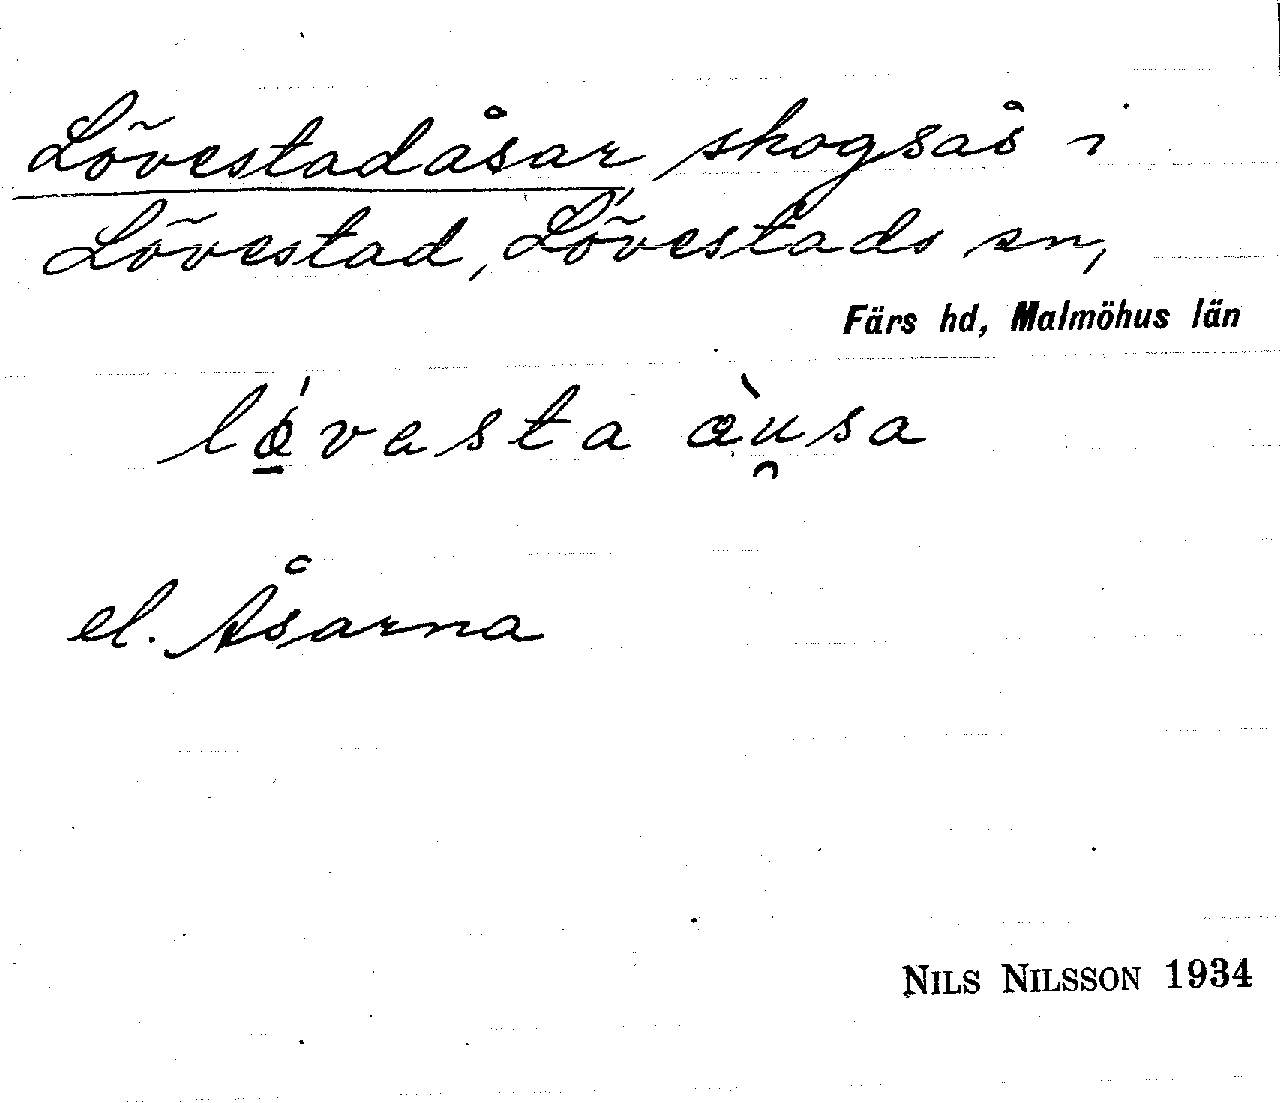 Lövestadåsar skogsås i
Lövestad, Lövestads sn,
Färs hd, Malmöhus län
lǿ̱vasta àu̯sa
el. Åsarna
NILS NILSSON 1934